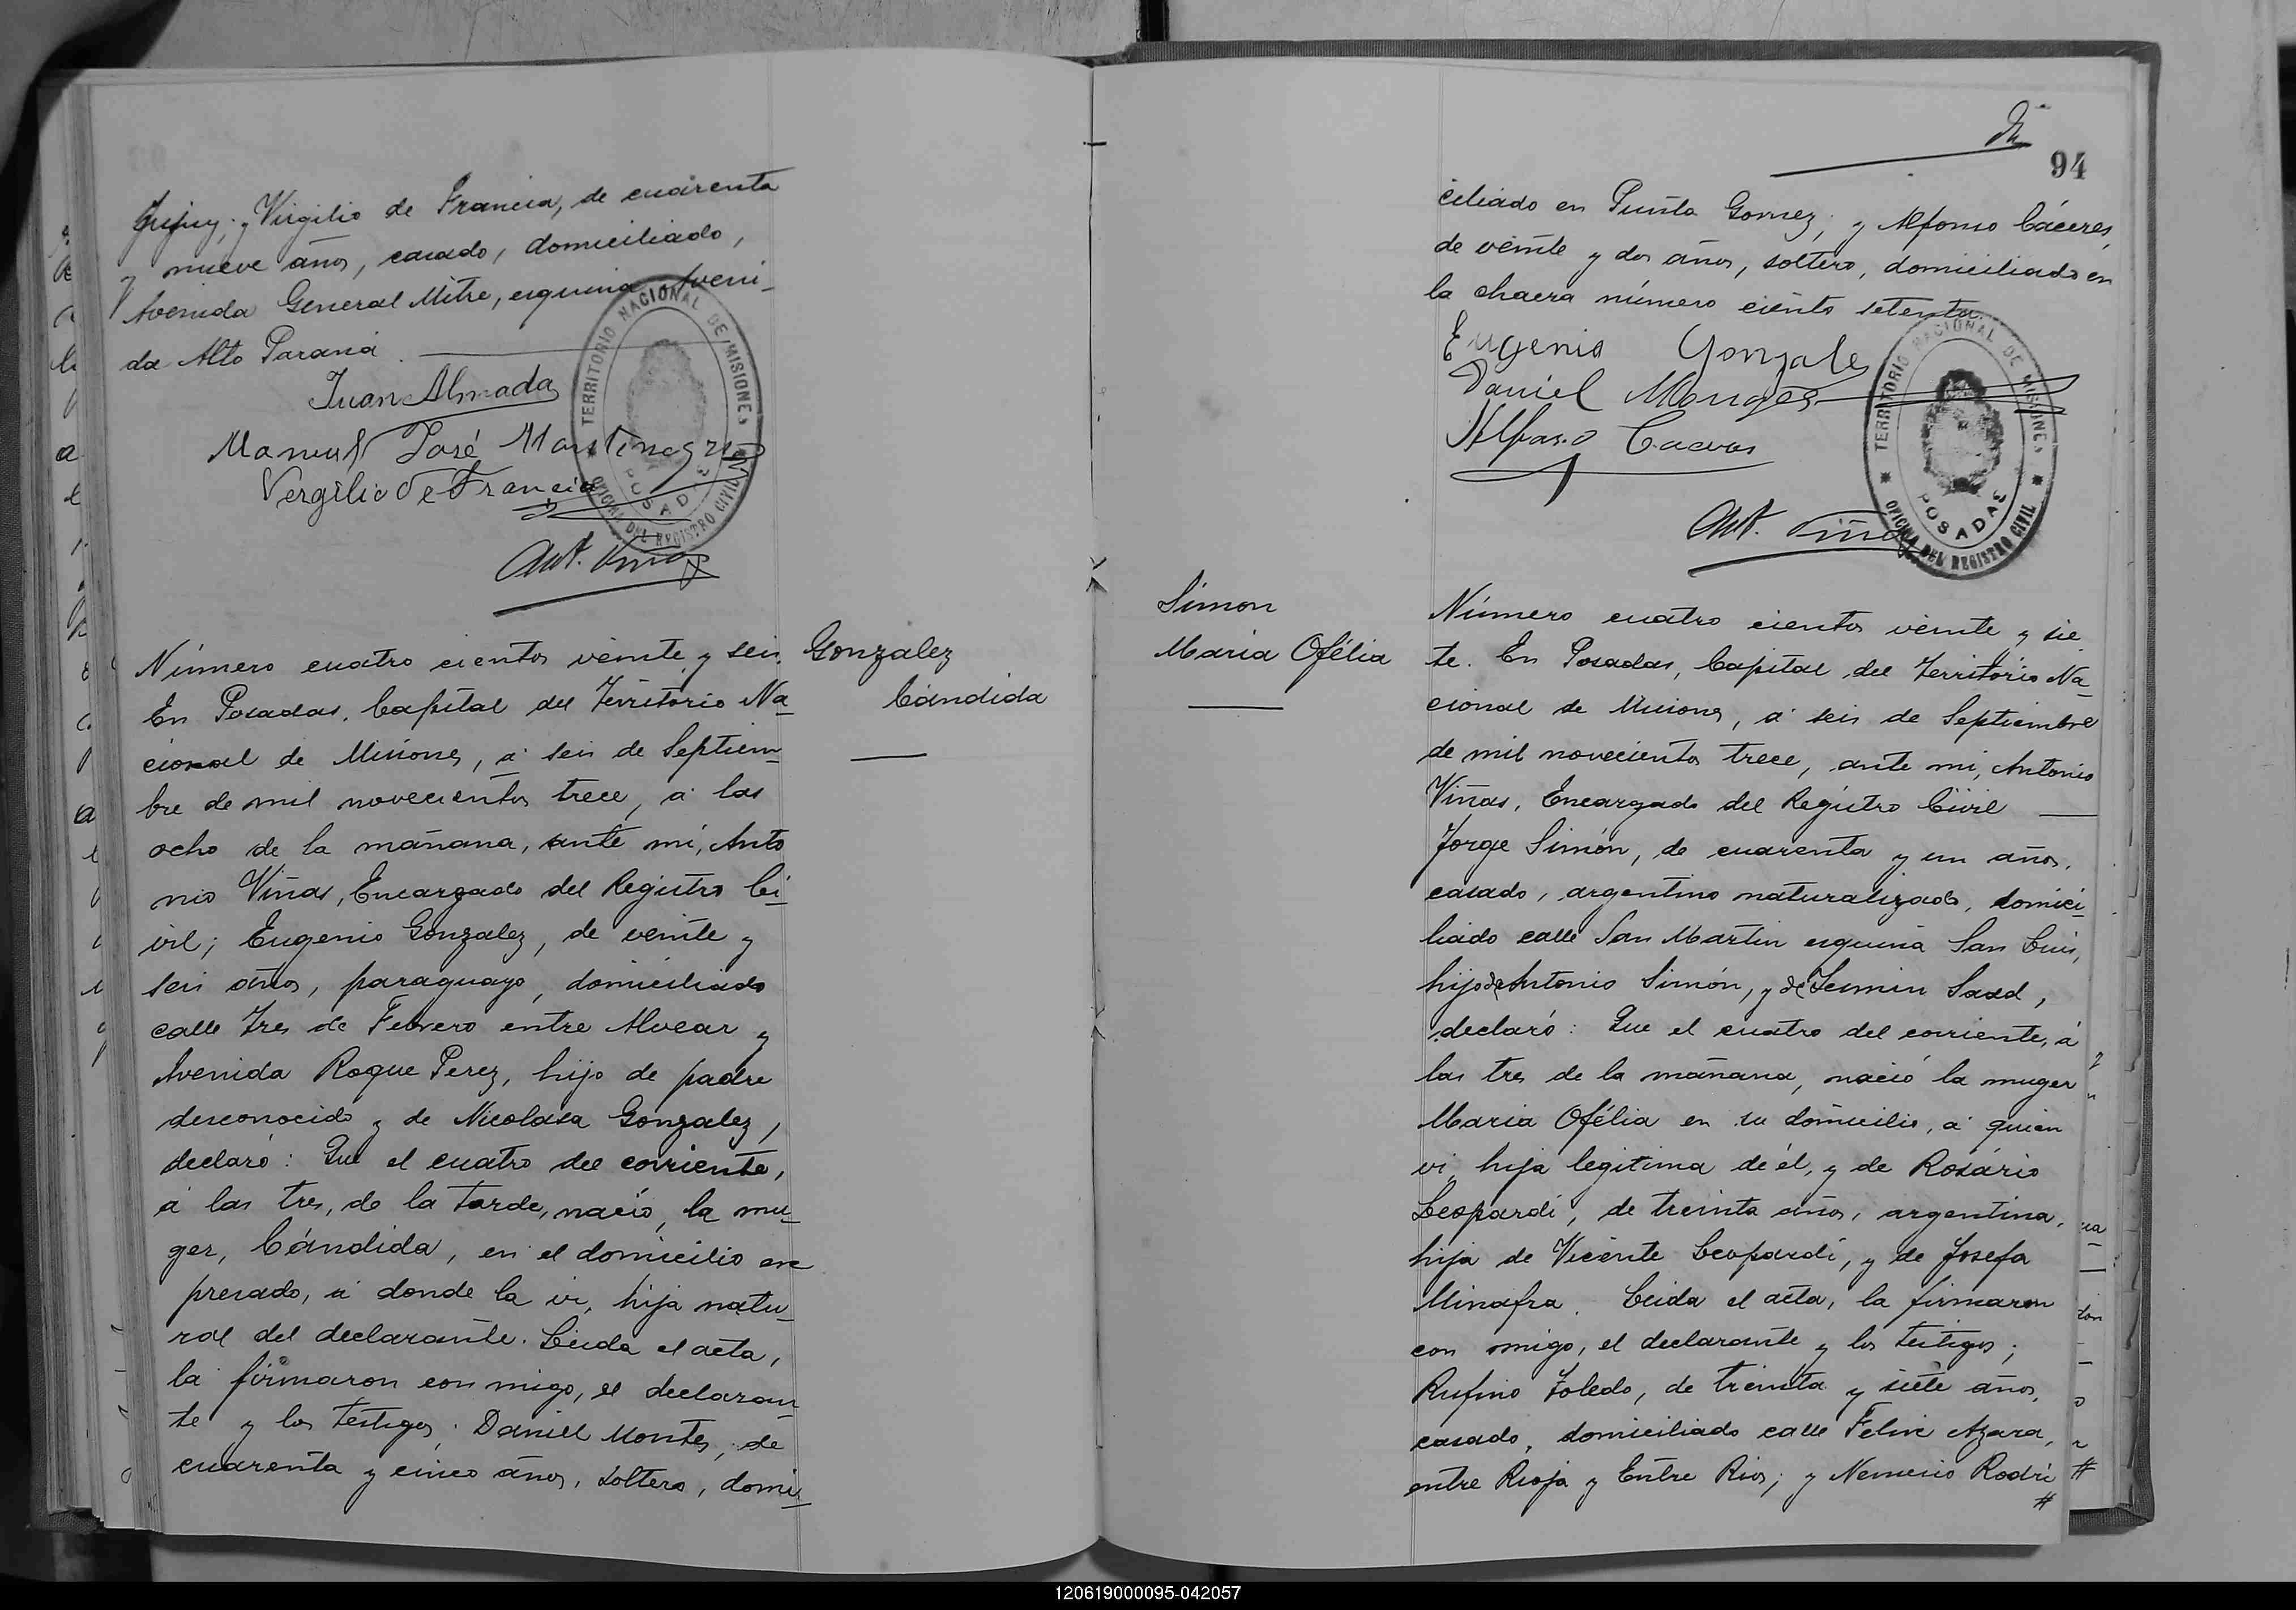 Jujuy; y Virgilio de Francia, de cuarenta
y nueve años, casado, domiciliado,
Avenida General Mitre, esquina Aveni_
da Alto Paraná.
Juan Almada
Manuel José Martinez
Vergilio De Francia
Ant. Viñas
TERRITORIO NACIONAL DE MISIONES
POSADAS
OFICINA DEL REGISTRO CIVIL
Gonzalez
Cándida
Número cuatro cientos veinte y seis.
En Posadas, Capital del Territorio Na_
cional de Misiones, á seis de Septiem_
bre de mil novecientos trece, á las
ocho de la mañana, ante mi, Anto
nio Viñas, Encargado del Registro Ci_
vil; Eugenio Gonzalez, de veinte y
seis años, paraguayo, domiciliado
calle Tres de Febrero entre Alvear y
Avenida Roque Perez, hijo de padre
desconocido y de Nicolasa Gonzalez,
declaró: Que el cuatro del corriente,
á las tres, de la tarde, nació, la mu_
ger, Cándida, en el domicilio ex
presado, á donde la vi, hija natu_
ral del declarante. Leida el acta,
la firmaron con migo, el declaran_
te y los testigos; Daniel Montes, de
cuarenta y cinco años, soltero, domi_
94
ciliado en Punta Gomez; y Alfonso Cáceres,
de veinte y dos años, soltero, domiciliado en
la chacra número ciento setenta.
Eugenio Gonzale
Daniel Monges
Alfonso Caceres
Ant. Viñas
TERRITORIO NACIONAL DE MISIONES
POSADAS
OFICINA DEL REGISTRO CIVIL
Simon
Maria Ofélia
Número cuatro cientos veinte y sie
te. En Posadas, Capital del Territorio Na_
cional de Misiones, á seis de Septiembre
de mil novecientos trece, ante mi, Antonio
Viñas, Encargado del Registro Civil
Jorge Simón, de cuarenta y un años,
casado, argentino naturalizado, domici_
liado calle San Martin esquina San Luis,
hijo de Antonio Simón, y de Saad,
declaró: Que el cuatro del corriente, á
las tres de la mañana, nació la muger
Maria Ofélia en su domicilio, á quien
vi, hija legitima de él, y de Rosário
Leopardi, de treinta años, argentina,
hija de Vicente Leopardi, y de Josefa
Minafra. Leida el acta, la firmaron
con migo, el declarante y los testigos;
Rufino Toledo, de treinta y siete años,
casado, domiciliado calle Felix Azara,
entre Rioja y Entre Rios; y Nemesio Rodri
#
#
120619000095-042057